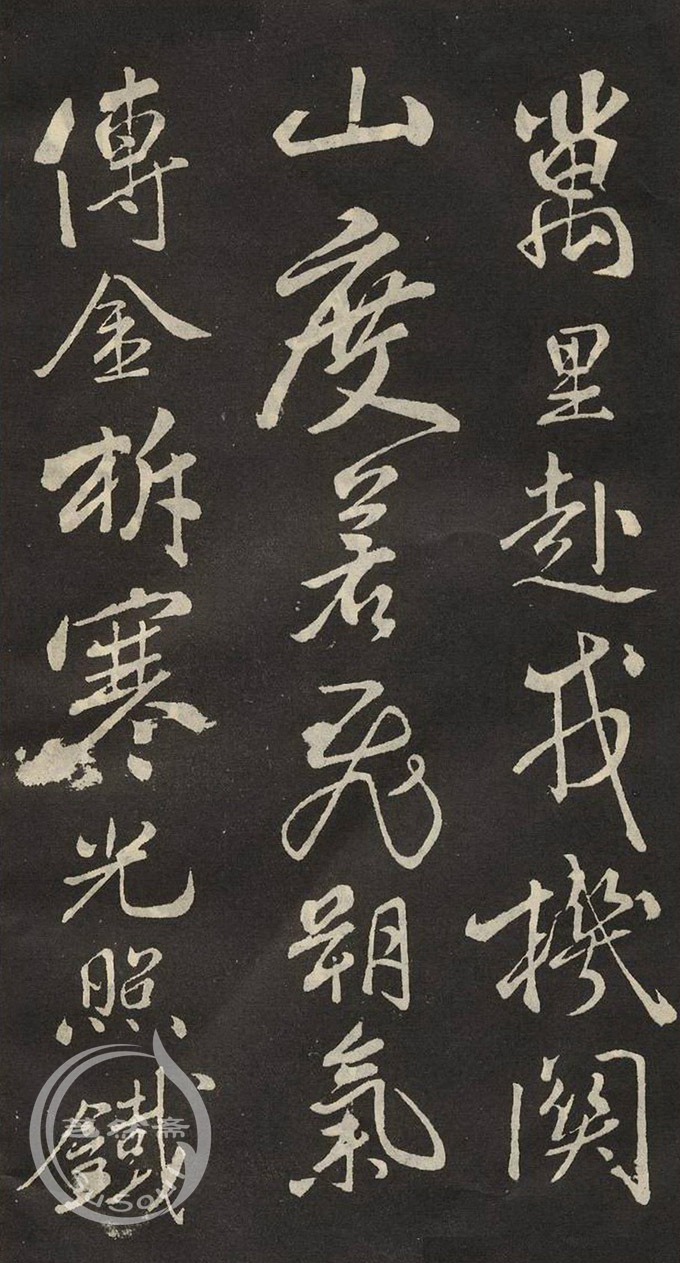 萬里赴戎機関
山度若飛朔氣
傳金柝寒光照鐵